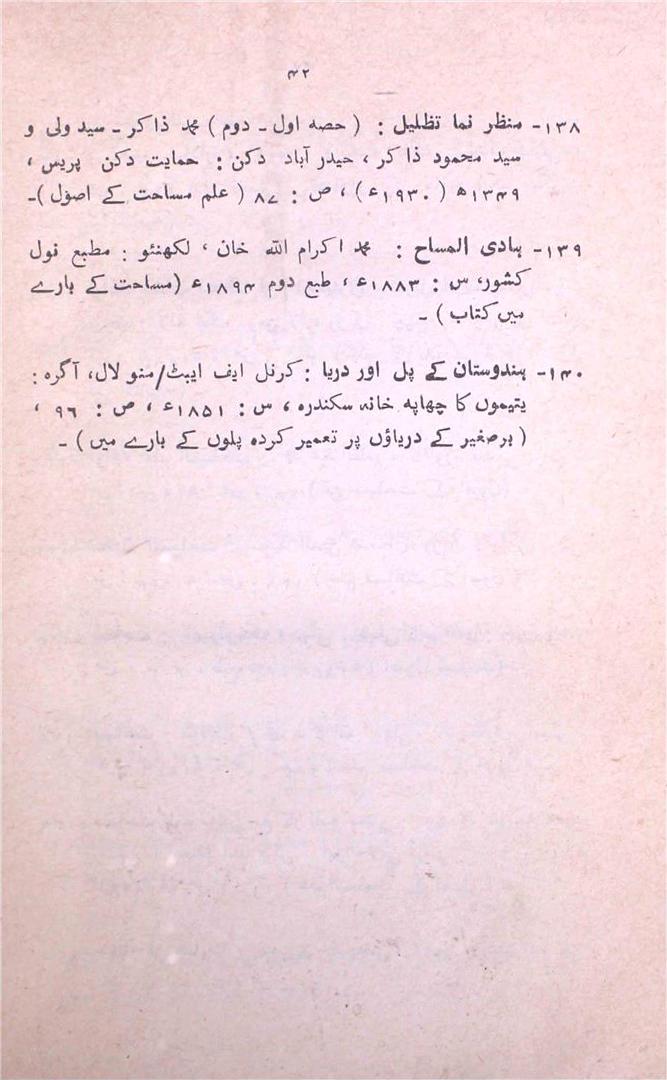 ۴۲
۱۳۸- منظر نما تظلیل : ( حصہ اول ـ دوم ) محمد ذاکر ـ سید ولی و
سید محمود ذاکر ، حیدر آباد دکن : حمایت دکن پریس ،
۱۳۴۹ھ ( ۱۹۳۰ء ) ، ص : ۸۷ ( علم مساحت کے اصول )ـ
۱۳۹- ہادی المساح : محمد اکرام اللہ خان ، لکھنئو : مطبع نول
کشور، س : ۱۸۸۳ء ، طبع دوم ۱۸۹۴ء (مساحت کے بارے
میں کتاب ) ـ
۱۴۰- ہندوستان کے پل اور دریا : کرنل ایف ایبٹ/منو لال، آگرہ :
یتیموں کا چھاپہ خانہ سکندرہ ، س : ۱۸۵۱ء ، ص : ۹۶ ،
( برصغیر کے دریاؤں پر تعمیر کردہ پلوں کے بارے میں ) ـ